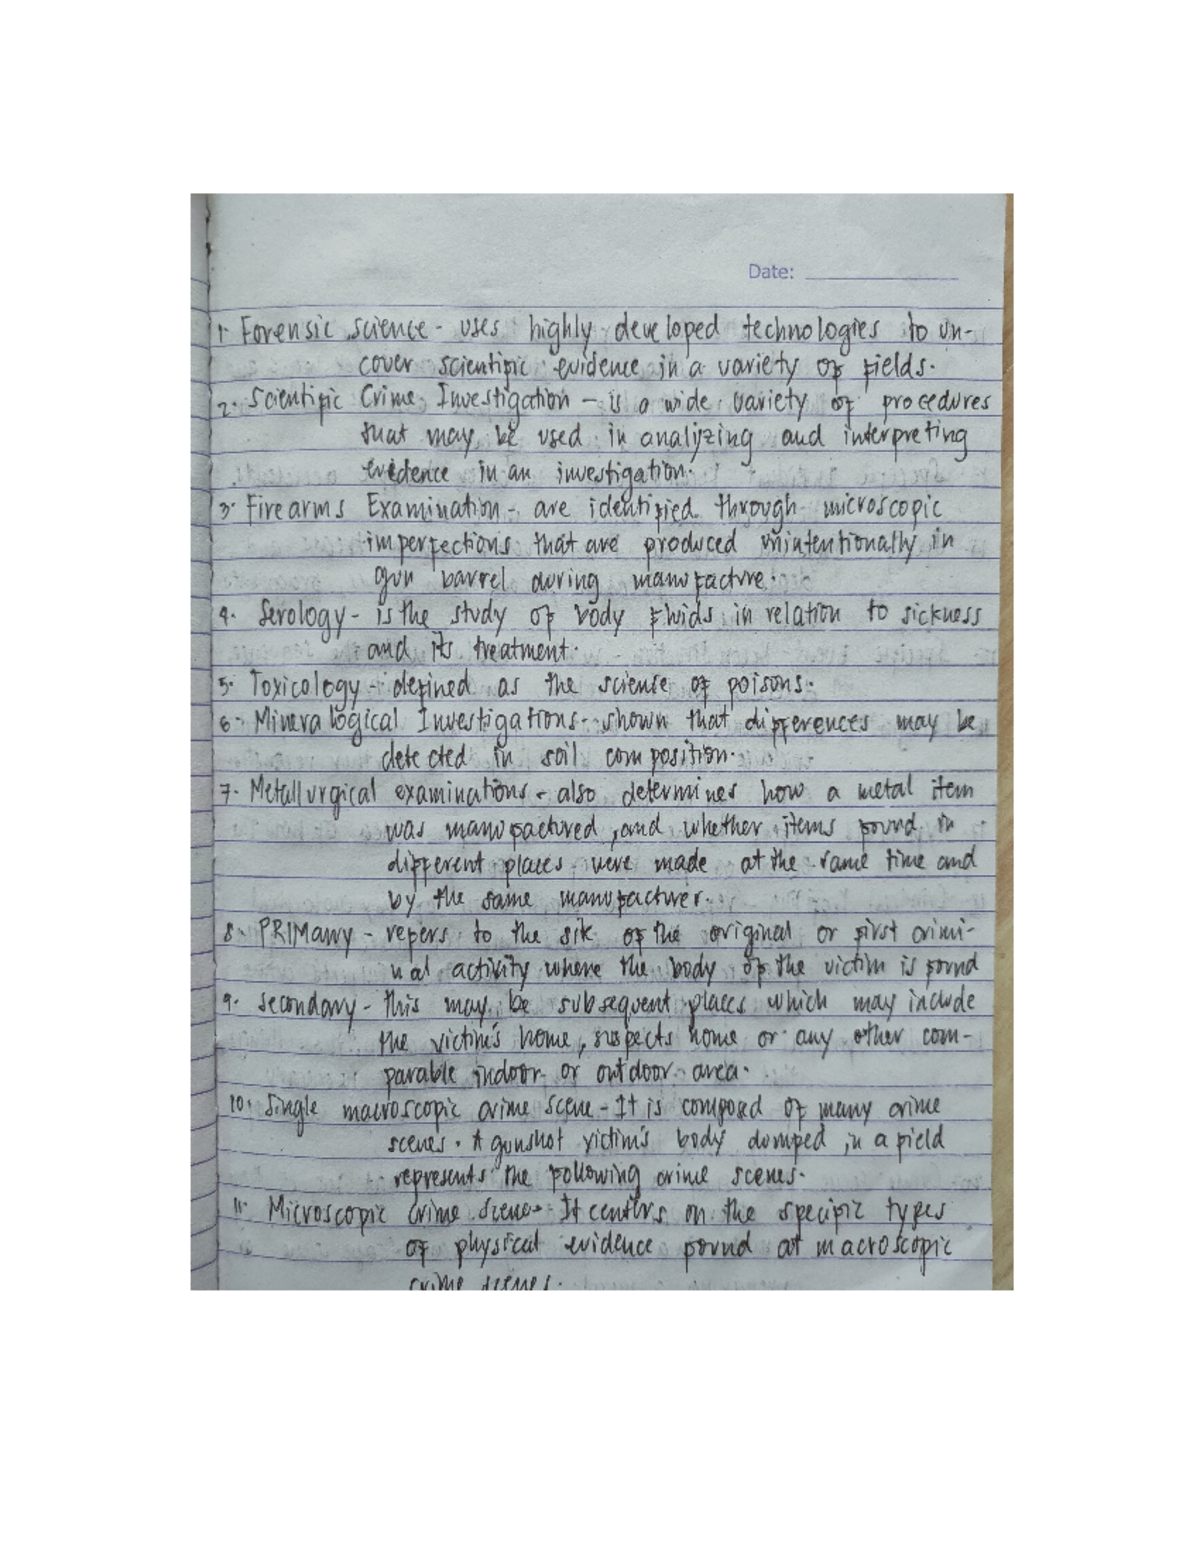 Date:
1. Forensic science - uses highly developed technologies to un-
cover scientific evidence in a variety of fields.
2. Scientific Crime Investigation - is a wide variety of procedures
that may be used in analyzing and interpreting
evidence in an investigation.
3. Firearms Examination - are identified through microscopic
imperfections that are produced unintentionally in
gun barrel during manufacture.
4. Serology - is the study of body fluids in relation to sickness
and its treatment.
5. Toxicology - defined as the science of poisons.
6. Mineralogical Investigations - shown that differences may be
detected in soil composition.
7. Metallurgical examinations - also determines how a metal item
was manufactured, and whether items found in
different places were made at the same time and
by the same manufacturer.
8. PRIMARY - refers to the site of the original or first crimi-
nal activity where the body of the victim is found
9. secondary - this may be subsequent places which may include
the victim's home, suspects home or any other com-
parable indoor or outdoor area.
10. Single macroscopic crime scene - It is composed of many crime
scenes. A gunshot victim's body dumped in a field
represents the following crime scenes.
11. Microscopic Crime Scene - It centers on the specific types
of physical evidence found at macroscopic
crime scenes.